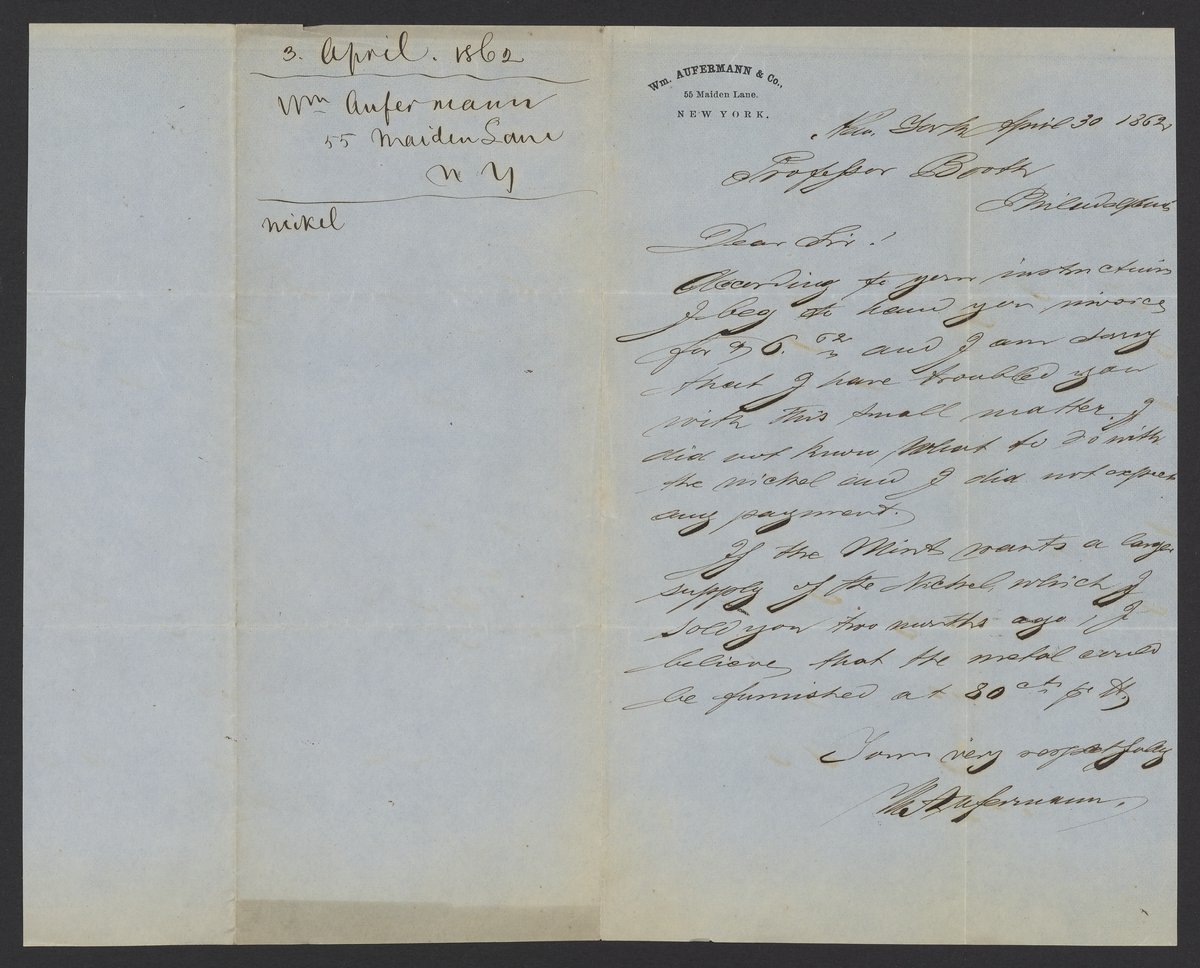 3. April. 1862
Wm Aufermann
55 Maiden Lane
N Y
nickel
Wm. AUFERMANN & Co.,
55 Maiden Lane.
NEW YORK.
New York April 30 1862
Professor Booth
Philadelphia
Dear Sir!
According to your instructions
I beg to hand you invoice
for $ 6. 62 and I am sorry
that I have troubled you
with this small matter. I
did not know what to do with
the nickel and I did not expect
any payment.
If the Mint wants a larger
supply of the Nickel, which I
sold you two months ago, I
believe, that the metal could
be furnished at 80 cts pr lb,
Yours very respectfully
Wm Aufermann.